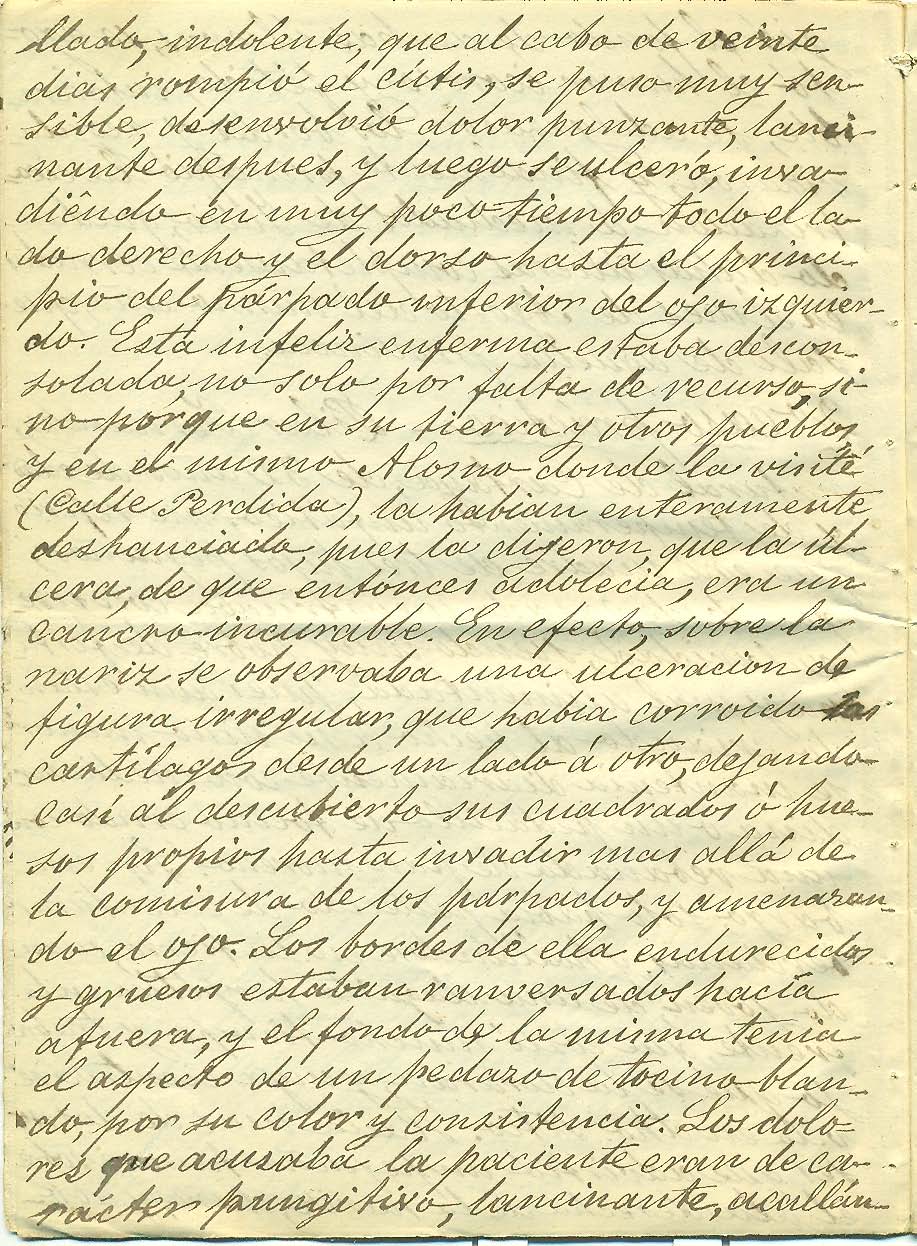 llado, indolente, que al cabo de veinte
dias rompió el cútis, se puso muy sen-
sible, desenvolvió dolor punzante, lanci-
nante despues, y luego se ulceró, inva-
diêndo en muy poco tiempo todo el la-
do derecho y el dorso hasta el princi-
pio del párpado inferior del ojo izquier-
do. Esta infeliz enferma estaba descon-
solada, no solo por falta de recurso, si-
no porque en su tierra y otros pueblos,
y en el mismo Alosno donde la visité
(Calle Perdida), la habian enteramente
deshanciado, pues la dijeron, que la úl-
cera, de que entónces adolecia, era un
cancro incurable. En efecto, sobre la
nariz se observaba una ulceracion de
figura irregular, que habia corroido los
cartílagos desde un lado á otro, dejando
casi al descubierto sus cuadrados ó hue-
sos propios hasta invadir mas allá de
la comisura de los párpados, y amenazan-
do el ojo. Los bordes de ella endurecidos
y gruesos estaban ranversados hacia
afuera, y el fondo de la misma tenia
el aspecto de un pedazo de tocino blan-
do, por su color y consistencia. Los dolo-
res que acusaba la paciente eran de ca-
rácter pungitivo, lancinante, acallán-